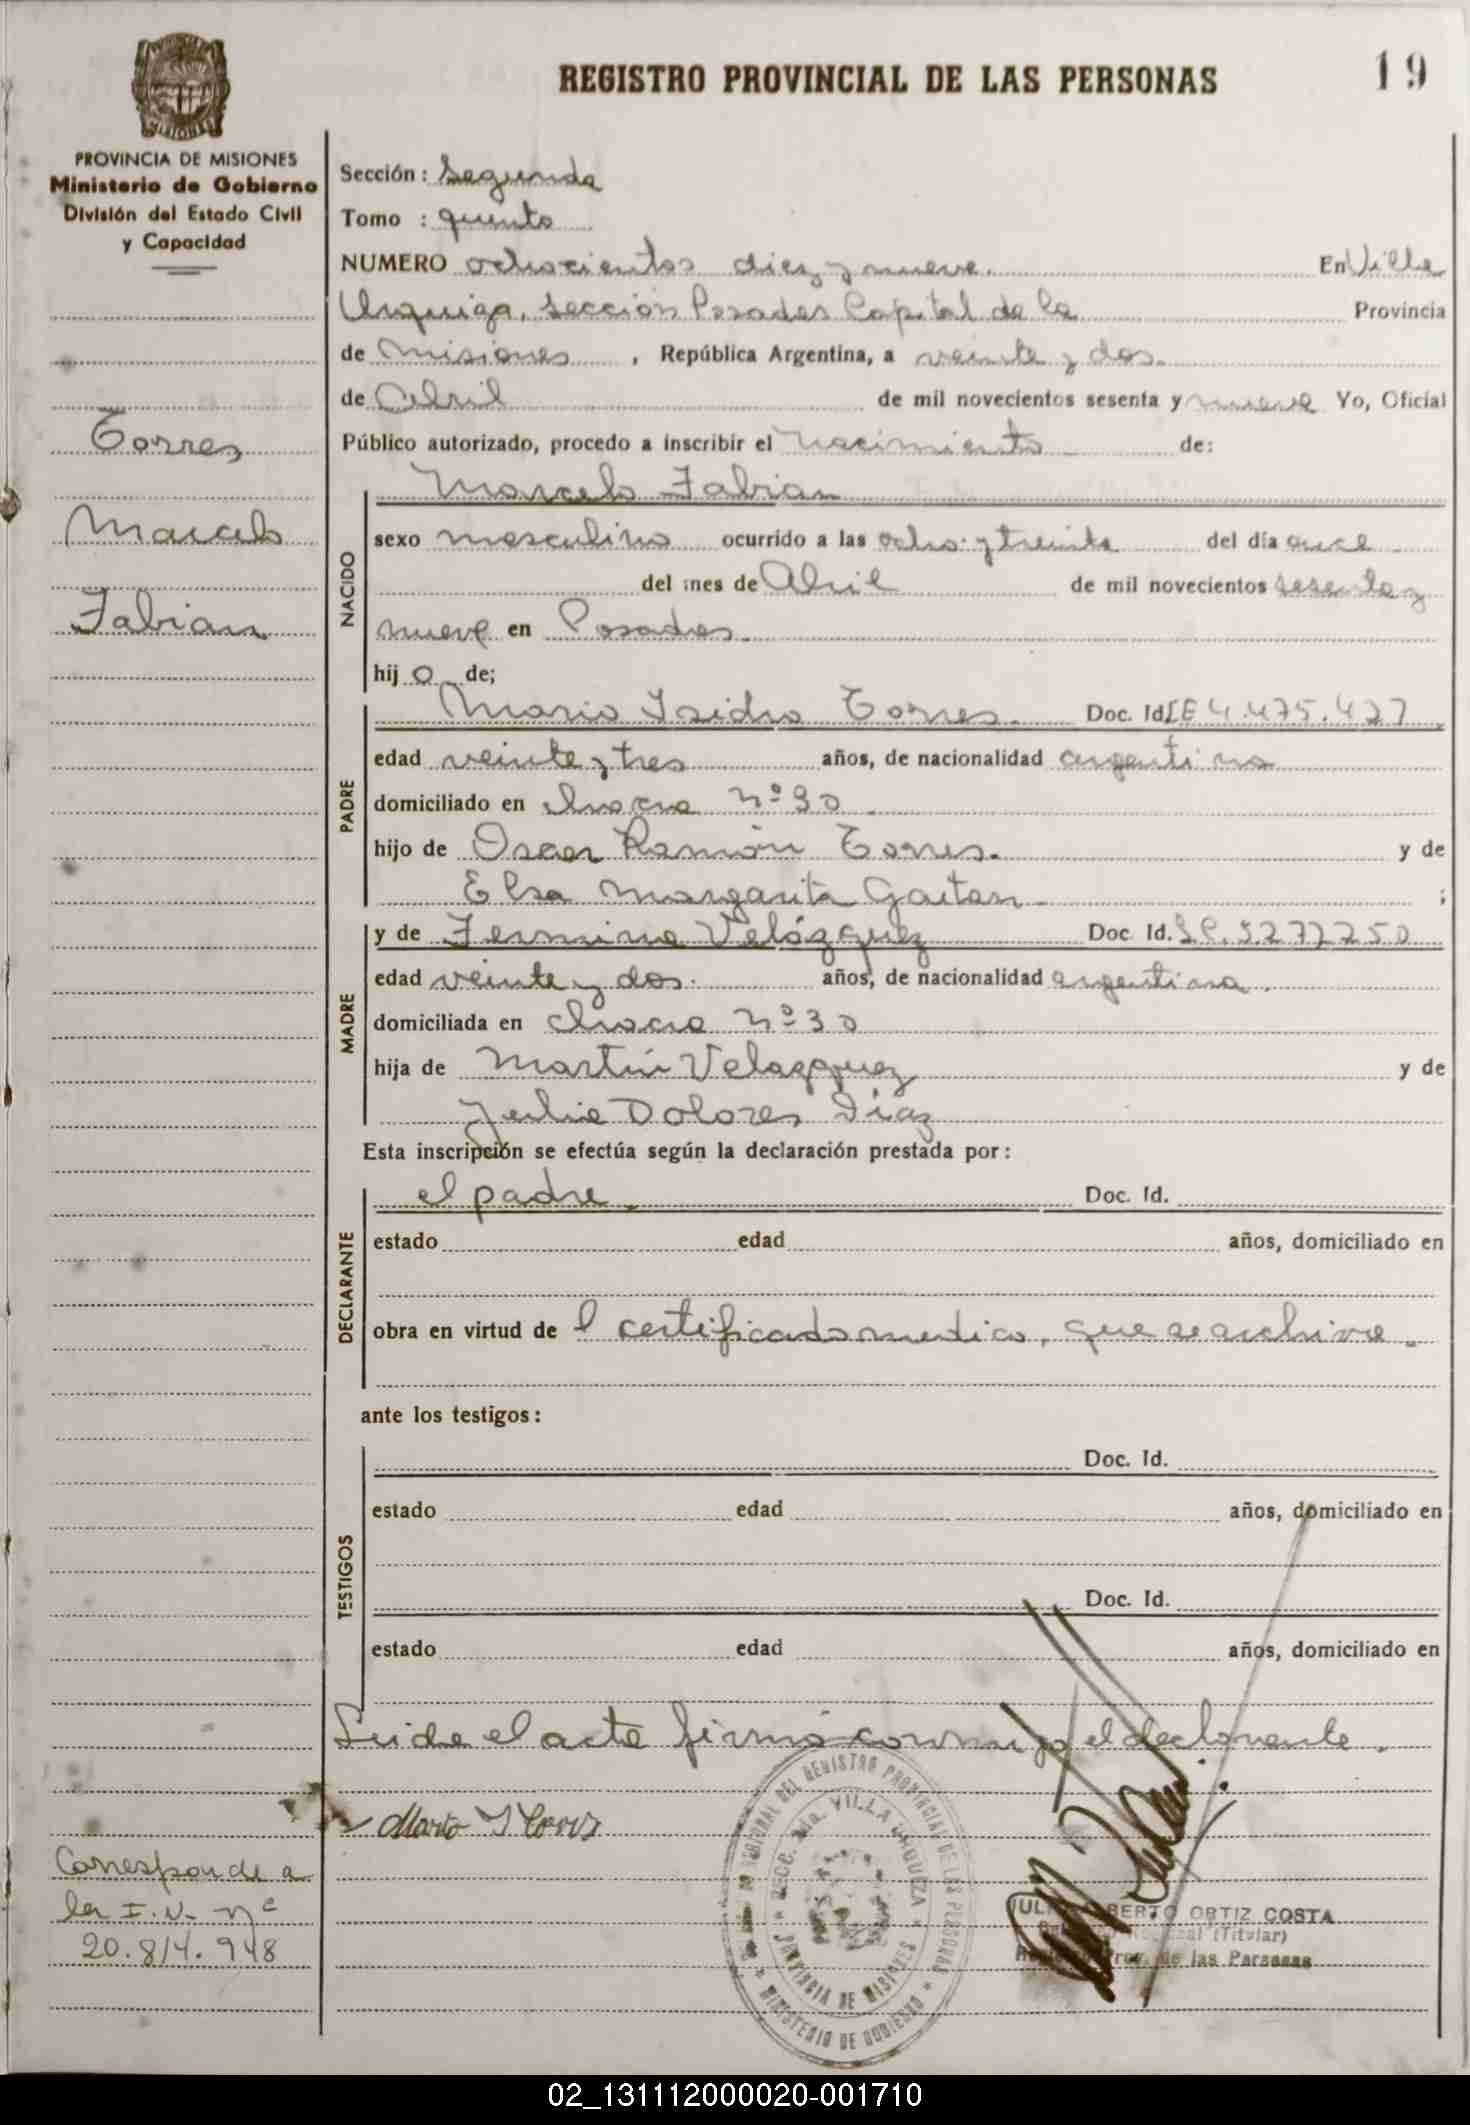 REGISTRO PROVINCIAL DE LAS PERSONAS
19
MISIONES
PROVINCIA DE MISIONES
Ministerio de Gobierno
División del Estado Civil
y Capacidad
Torres
Marcelo
Fabian
Sección: Segunda
Tomo : quinto
NUMERO ochocientos diez y nueve. En Villa
Urquiza, sección Posadas Capital de la Provincia
de Misiones, República Argentina, a veinte y dos.
de Abril de mil novecientos sesenta y nueve Yo, Oficial
Público autorizado, procedo a inscribir el nacimiento de:
NACIDO
Marcelo Fabian
sexo masculino ocurrido a las ocho y treinta del día once
del mes de Abril de mil novecientos sesenta y
nueve en Posadas.
hijo de;
PADRE
Mario Isidro Torres. Doc. Id. LE 4.475.427
edad veinte y tres años, de nacionalidad argentina
domiciliado en chacra nº 30
hijo de Oscar Ramón Torres. y de
Elsa Margarita Gaetan ;
MADRE
y de Fermina Velázquez Doc. Id. 5272250
edad veinte y dos. años, de nacionalidad argentina.
domiciliada en chacra nº 30
hija de Martín Velazquez y de
Julia Dolores Diaz
Esta inscripción se efectúa según la declaración prestada por:
DECLARANTE
el padre. Doc. Id.
estado edad años, domiciliado en
obra en virtud de l certificado medico, que se archiva.
ante los testigos:
TESTIGOS
Doc. Id.
estado edad años, domiciliado en
Doc. Id.
estado edad años, domiciliado en
Leida el acta firmó conmigo el declarante.
Mario I Torres
DEL REGISTRO PROVINCIAL DE LAS PERSONAS
SECC. 2da. VILLA URQUIZA
PROVINCIA DE MISIONES
MINISTERIO DE GOBIERNO
JULIO ALBERTO ORTIZ COSTA
(Titular)
Prov. de las Personas
Corresponde a
la I.N. nº
20.814.948
02_131112000020-001710